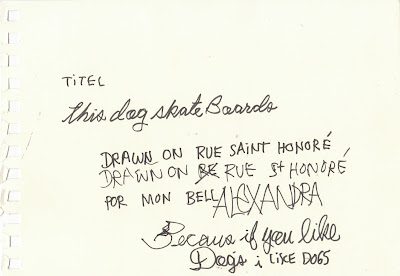 TiTEL
this dog skate Boards
DRAWN ON RUE SAINT HONORÉ
DRAWN ON RUE St HONORÉ
POR MON BELL ALEXANDRA
Becaus if you like
Dogs i LIKE DOGS